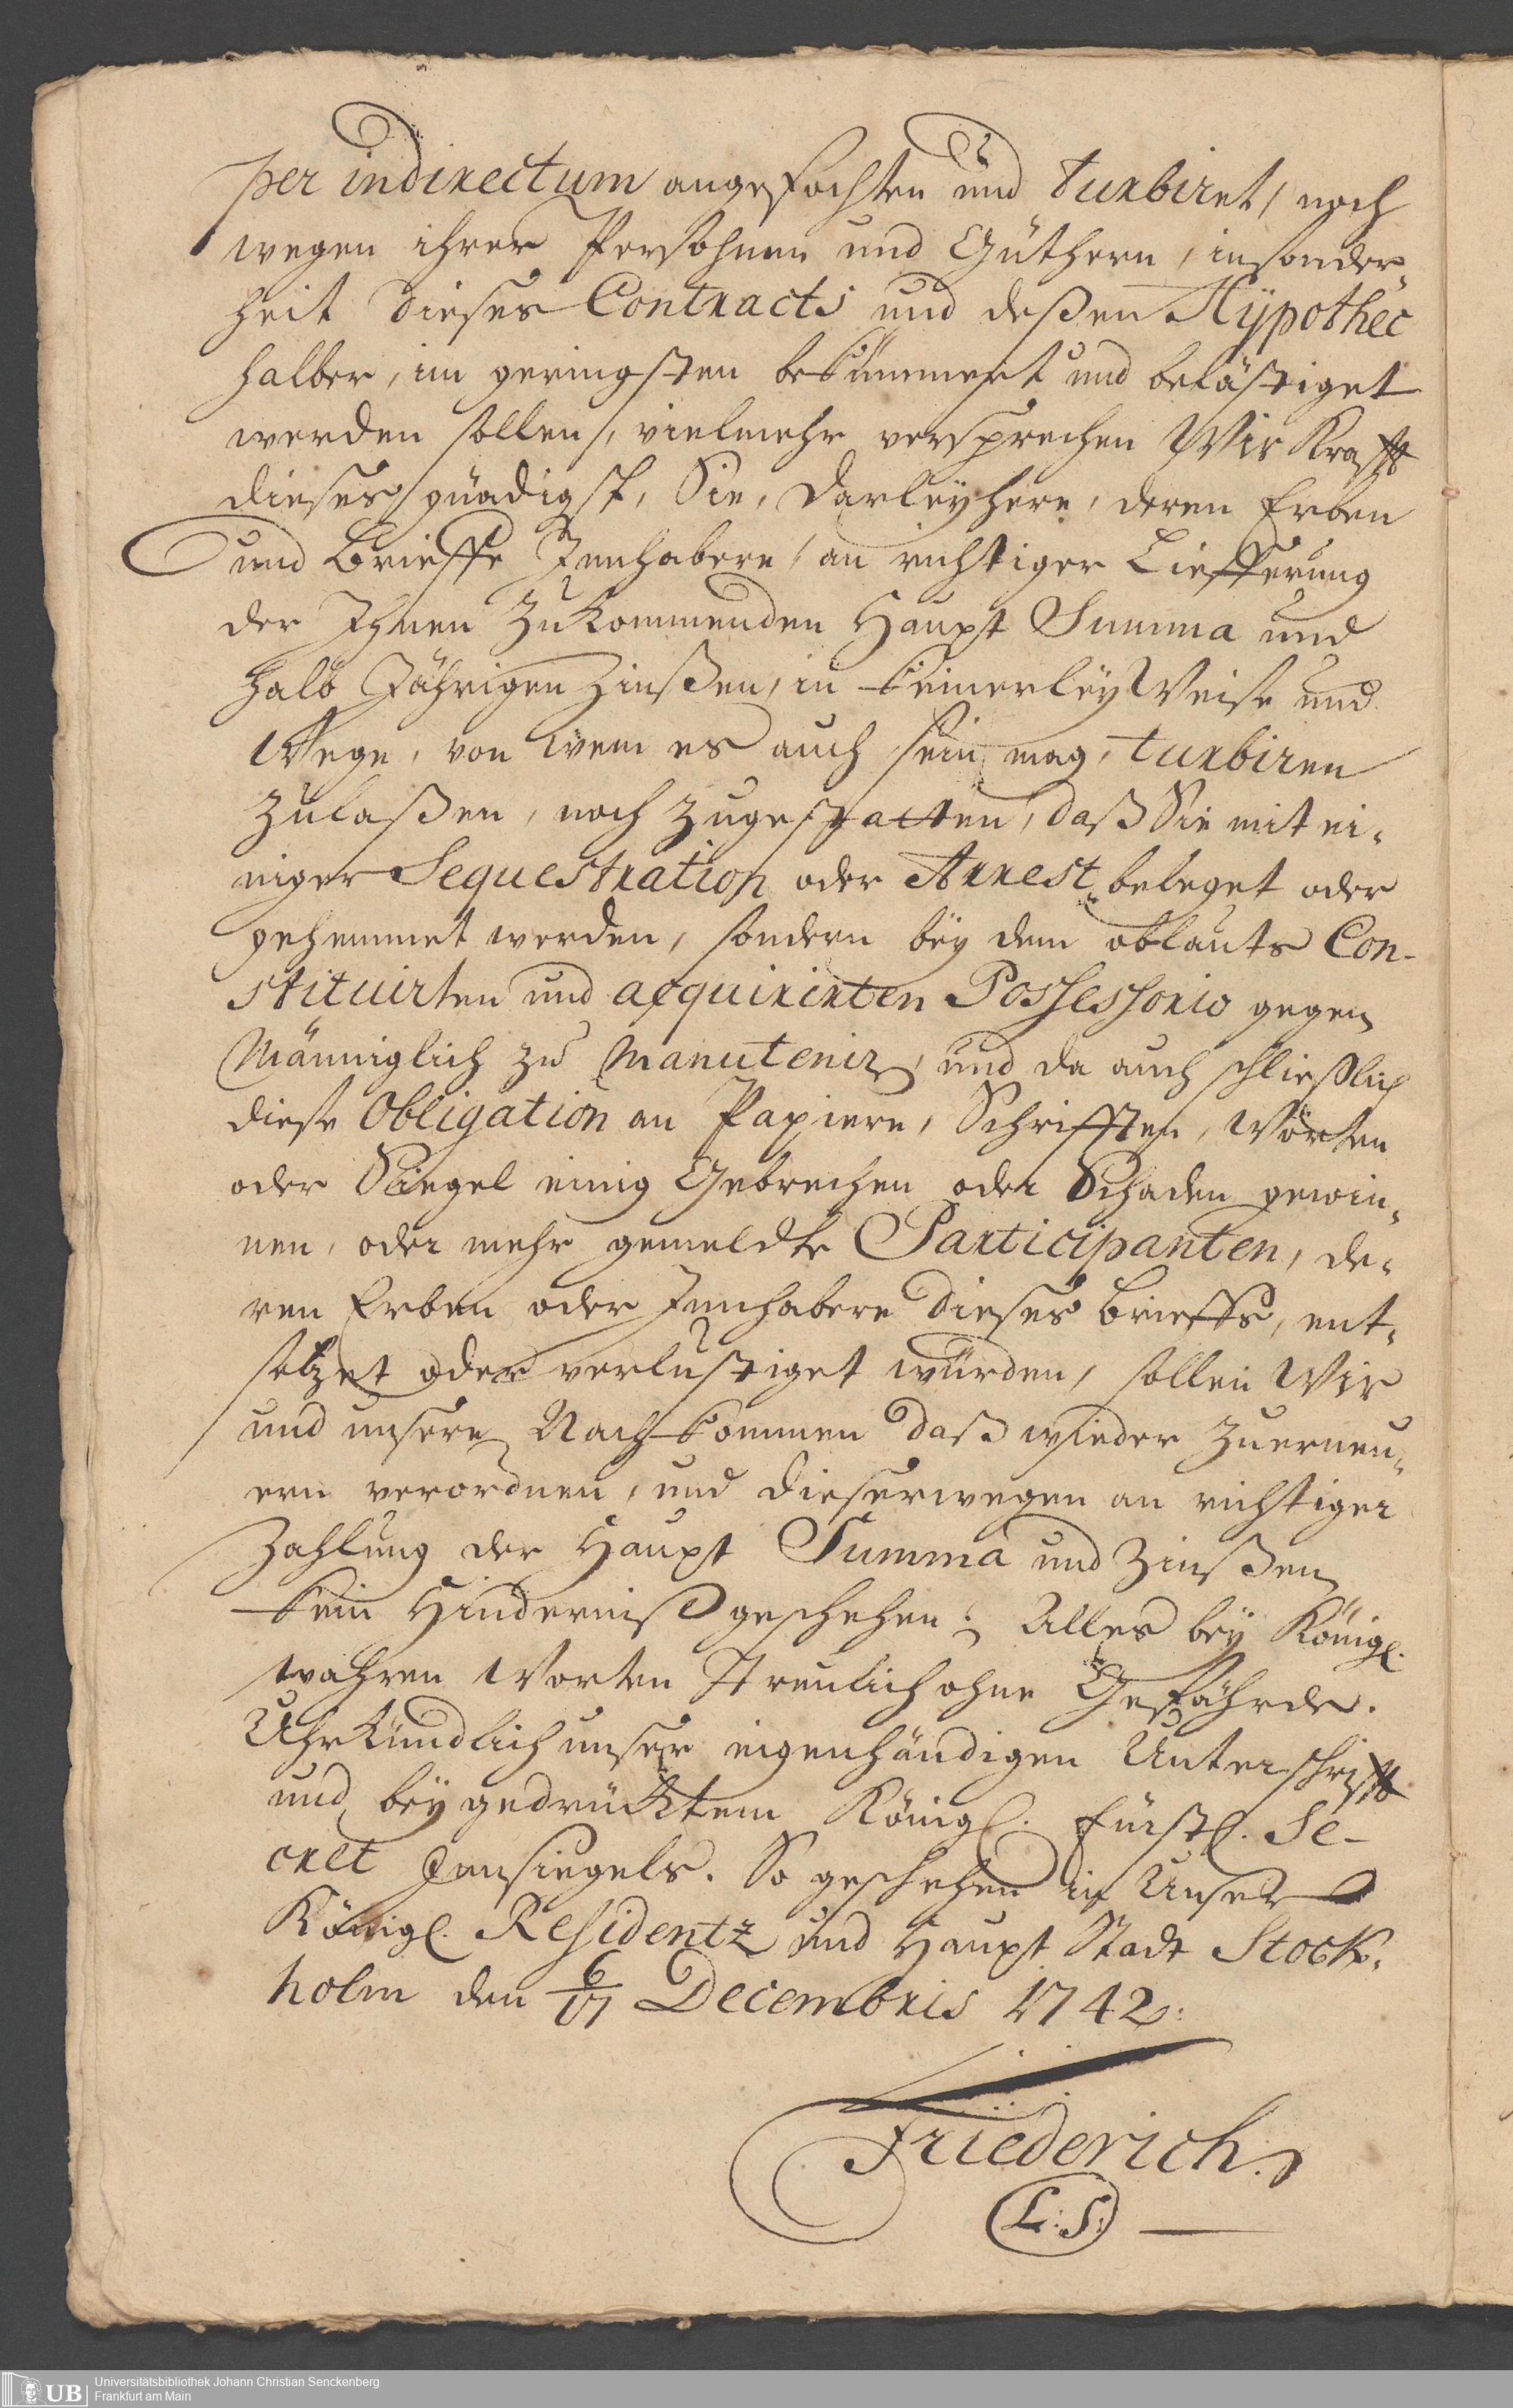 per indirectum angefochten und turbiret, noch
wegen ihrer Persohnen und Güthern, insonder-
heit dieses Contracts und deßen Hÿpothec
halber, im geringsten bekümmert und belästiget
werden sollen, vielmehr versprechen Wir Krafft
dieses gnädigst, Sie, Darleÿhere, deren Erben
und Brieffs Innhabere, an richtiger Liefferung
der Ihnen zukommenden Haupt Summa und
halb Jährigen Zinßen, in keinerleÿ Weise und
Wege, von wem es auch sein mag, turbiren
zulaßen, noch zugestatten, daß Sie mit ei-
niger Sequestration oder Arrest beleget oder
gehemmet werden, sondern beÿ dem oblauts Con-
stituirten und acquirirten Possessorio gegen
Männiglich zu manuteniren, und da auch schließlich
diese Obligation an Papiere, Schrifften, Worten
oder Siegel einig Gebrechen oder Schaden gewin-
nen, oder mehr gemeldte Participanten, de-
ren Erben oder Innhabere dieses Brieffs, ent-
setzet oder verlustiget würden, sollen Wir
und unsere Nachkommen daß wieder zuerneu-
ern verordnen, und dieserwegen an richtiger
Zahlung der Haupt Summa und Zinßen
kein Hinderniß geschehen; Alles beÿ Königl.
wahren Worten Treulich ohne Gefährde.
Uhrkundlich unser eigenhändigen Unterschrifft
und beÿ gedrücktem Königl. Fürstl. Se-
cret Innsiegels. So geschehen in Unser
Königl. Residentz und Haupt Stadt Stock-
holm den 6/17 Decembris 1742.
Friederich.
L: S:
UB
Universitätsbibliothek Johann Christian Senckenberg
Frankfurt am Main